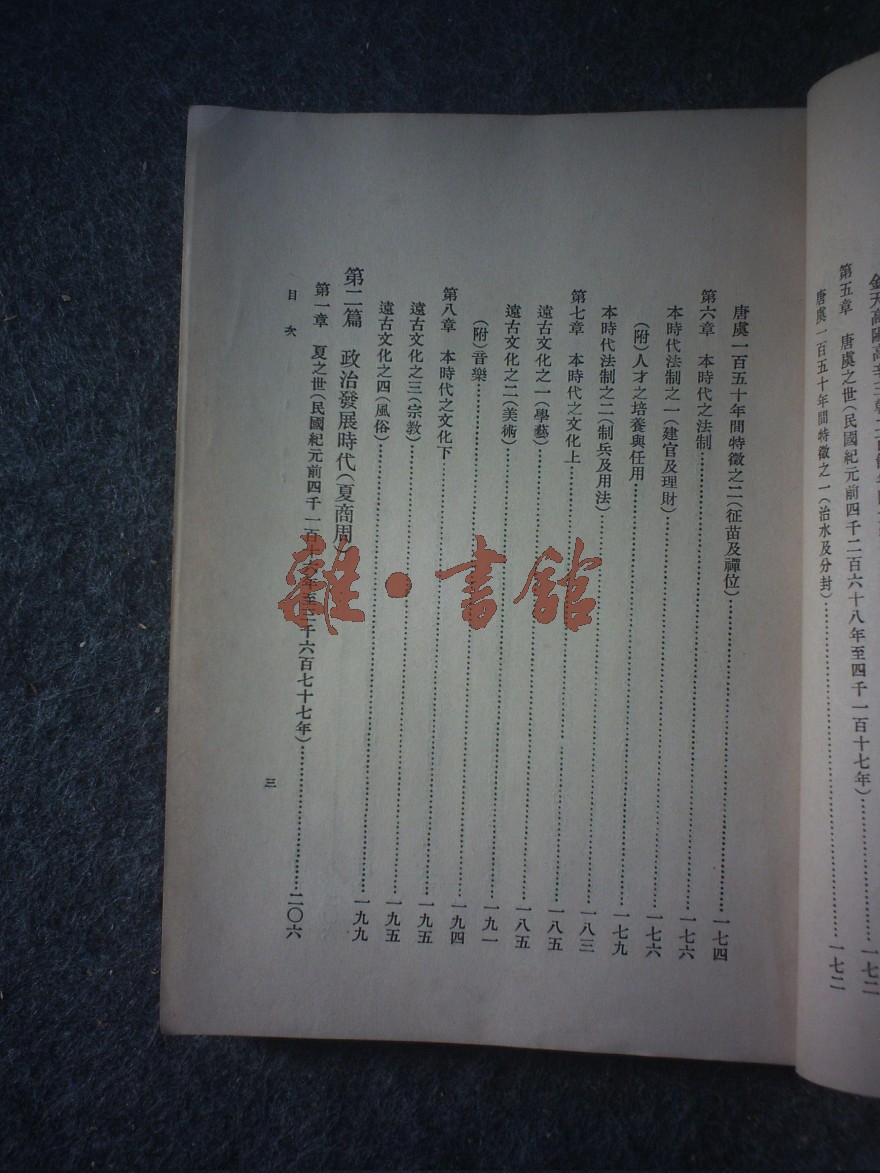 第五章 唐虞之世(民國紀元前四千二百六十八年至四千一百十七年)……一七二
唐虞一百五十年間特徵之一(治水及分封)……一七二
唐虞一百五十年間特徵之二(征苗及禪位)……一七四
第六章 本時代之法制……一七六
本時代法制之一(建官及理財)……一七六
(附)人才之培養與任用……一七九
本時代法制之二(制兵及用法)……一八三
第七章 本時代之文化上……一八五
遠古文化之一(學藝)……一八五
遠古文化之二(美術)……一九一
(附)音樂……一九四
第八章 本時代之文化下……一九五
遠古文化之三(宗教)……一九五
遠古文化之四(風俗)……一九九
第二篇 政治發展時代(夏商周)
第一章 夏之世(民國紀元前四千一百十六年至三千六百七十七年)……二〇六
目次
三
雜·書館